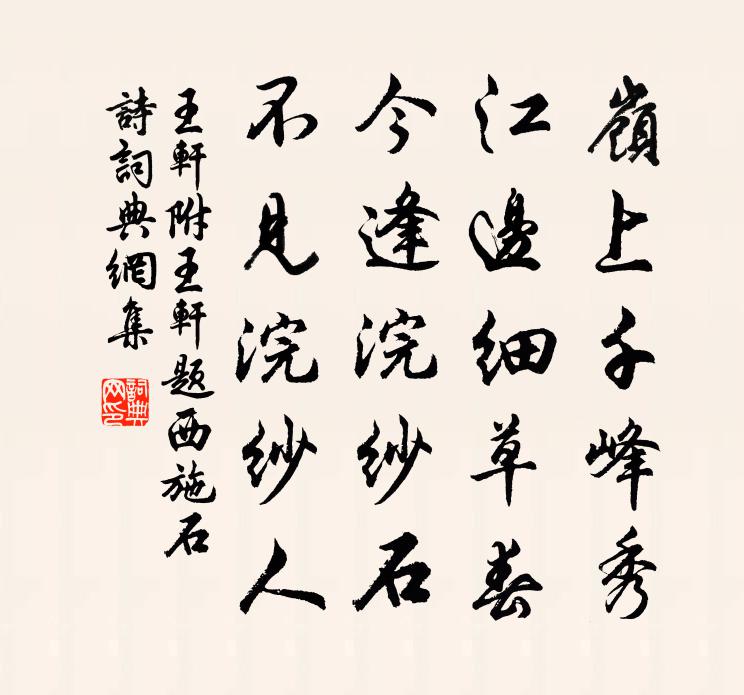 嶺上千峰秀
江邊細草春
今逢浣紗石
不見浣紗人
王軒附王軒題西施石
詩詞典網集
詞典網印